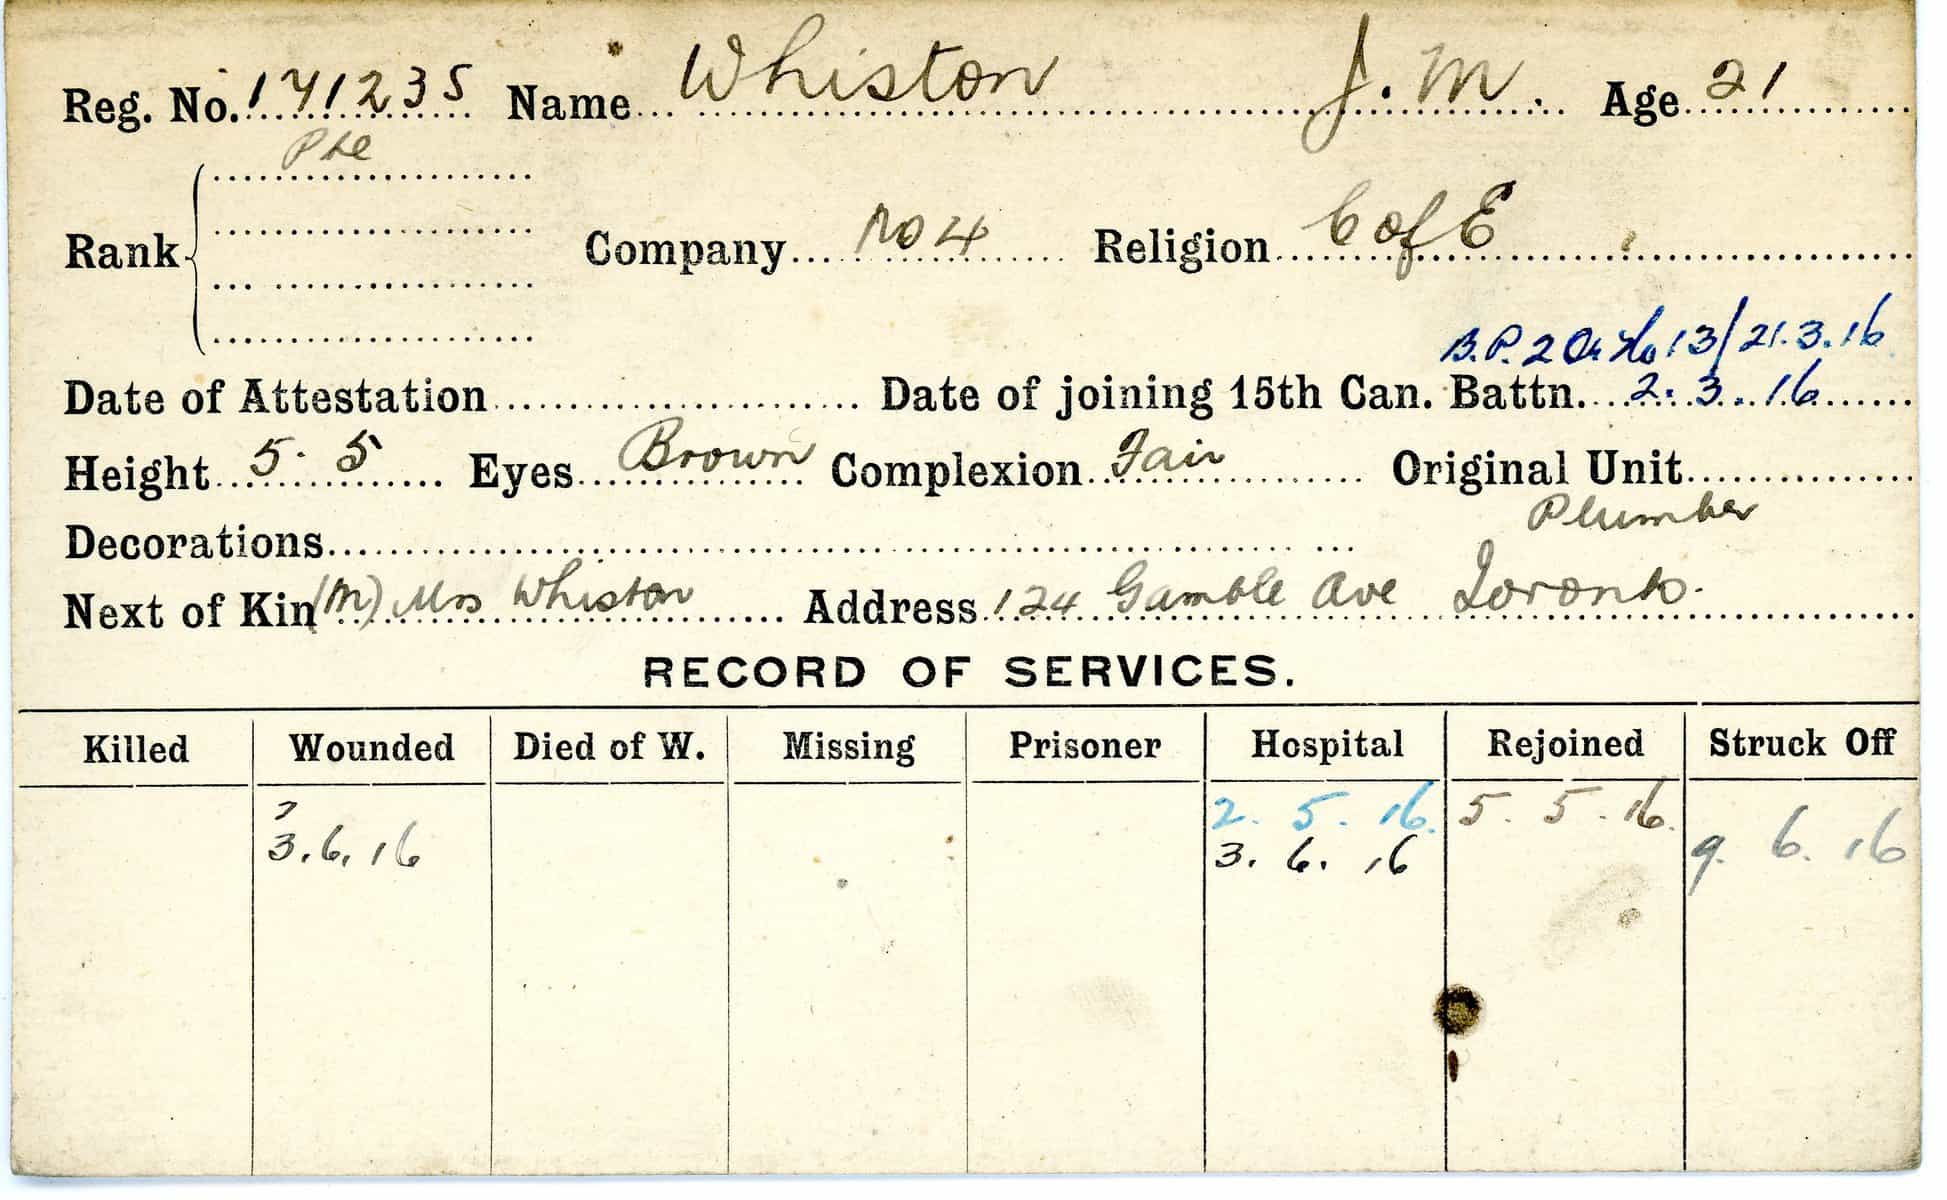 Reg. No. 171235 Name Whiston J. M. Age 21
Pte
Rank Company No 4 Religion C of E
B.P. 2 13/21.3.16
Date of Attestation Date of joining 15th Can. Battn. 2.3.16
Height 5.5 Eyes Brown Complexion Fair Original Unit
Plumber
Decorations
Next of Kin (M) Mrs Whiston Address 124 Gamble Ave Toronto.
RECORD OF SERVICES.
Killed Wounded Died of W. Missing Prisoner Hospital Rejoined Struck Off
? 2. 5. 16. 5. 5. 16.
3.6.16 3. 6. 16 9. 6. 16